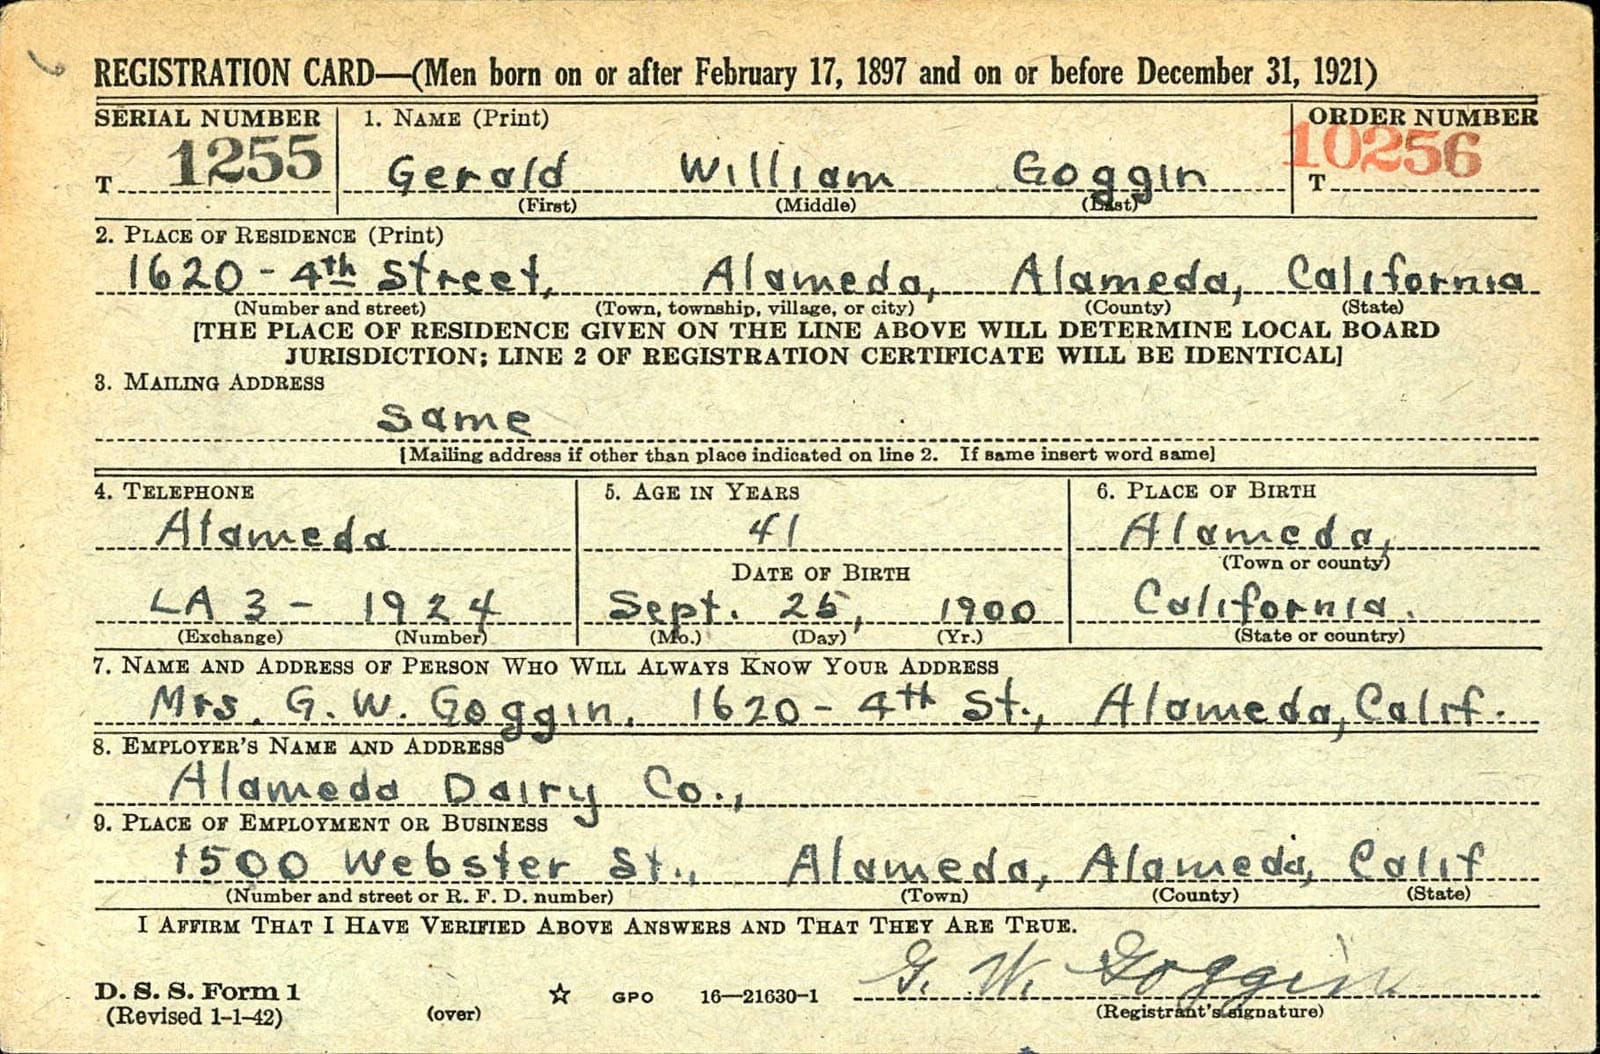 REGISTRATION CARD—(Men born on or after February 17, 1897 and on or before December 31, 1921)
SERIAL NUMBER
1. NAME (Print)
ORDER NUMBER
T 1255
Gerald William Goggin
T 10256
(First) (Middle) (Last)
2. PLACE OF RESIDENCE (Print)
1620 - 4th Street, Alameda, Alameda, California
(Number and street) (Town, township, village, or city) (County) (State)
[THE PLACE OF RESIDENCE GIVEN ON THE LINE ABOVE WILL DETERMINE LOCAL BOARD
JURISDICTION; LINE 2 OF REGISTRATION CERTIFICATE WILL BE IDENTICAL]
3. MAILING ADDRESS
Same
[Mailing address if other than place indicated on line 2. If same insert word same]
4. TELEPHONE
Alameda
LA 3 - 1924
(Exchange) (Number)
5. AGE IN YEARS
41
DATE OF BIRTH
Sept. 25, 1900
(Mo.) (Day) (Yr.)
6. PLACE OF BIRTH
Alameda,
(Town or county)
California.
(State or country)
7. NAME AND ADDRESS OF PERSON WHO WILL ALWAYS KNOW YOUR ADDRESS
Mrs. G. W. Goggin. 1620 - 4th St., Alameda, Calif.
8. EMPLOYER'S NAME AND ADDRESS
Alameda Dairy Co.,
9. PLACE OF EMPLOYMENT OR BUSINESS
1500 Webster St., Alameda, Alameda, Calif
(Number and street or R. F. D. number) (Town) (County) (State)
I AFFIRM THAT I HAVE VERIFIED ABOVE ANSWERS AND THAT THEY ARE TRUE.
G. W. Goggin
D. S. S. Form 1
(Revised 1-1-42) (over) ☆ GPO 16—21630-1 (Registrant's signature)